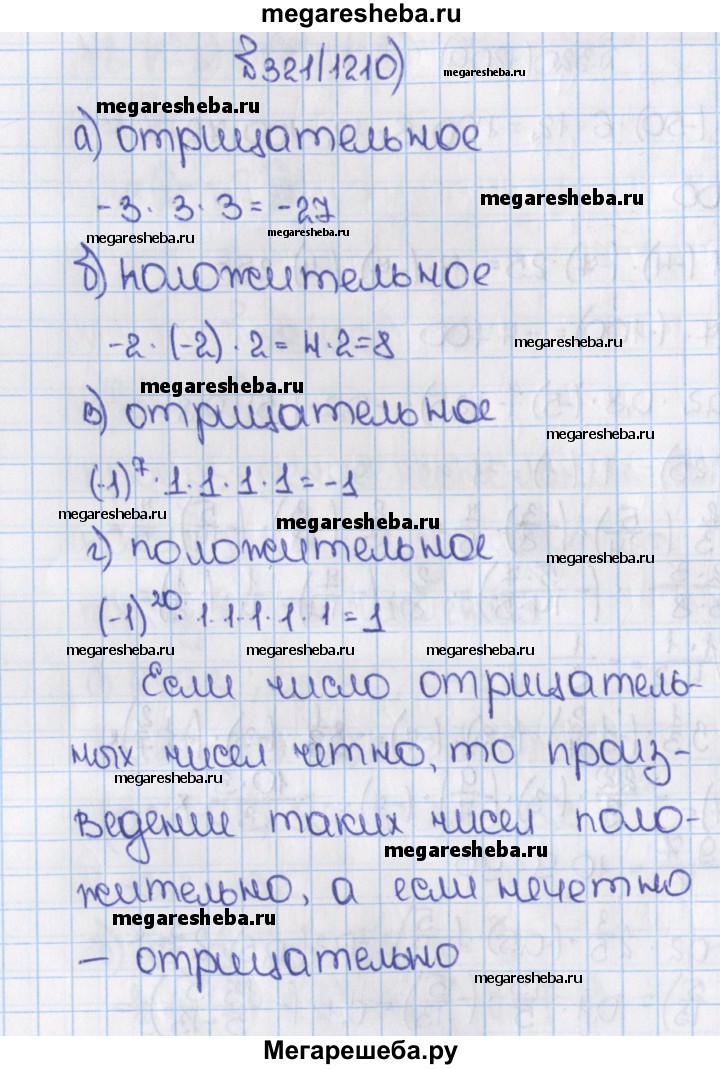 megaresheba.ru
№321(1210)
megaresheba.ru
megaresheba.ru
а) отрицательное
-3 · 3 · 3 = -27
megaresheba.ru
megaresheba.ru
megaresheba.ru
б) положительное
-2 · (-2) · 2 = 4 · 2 = 8
megaresheba.ru
megaresheba.ru
в) отрицательное
megaresheba.ru
(-1)⁷ · 1 · 1 · 1 · 1 = -1
megaresheba.ru
megaresheba.ru
г) положительное
megaresheba.ru
(-1)²⁰ · 1 · 1 · 1 · 1 · 1 = 1
megaresheba.ru megaresheba.ru megaresheba.ru
Если число отрицатель-
ных чисел четно, то произ-
megaresheba.ru
ведение таких чисел поло-
megaresheba.ru
жительно, а если нечетно
megaresheba.ru
— отрицательно
megaresheba.ru
Мегарешеба.ру